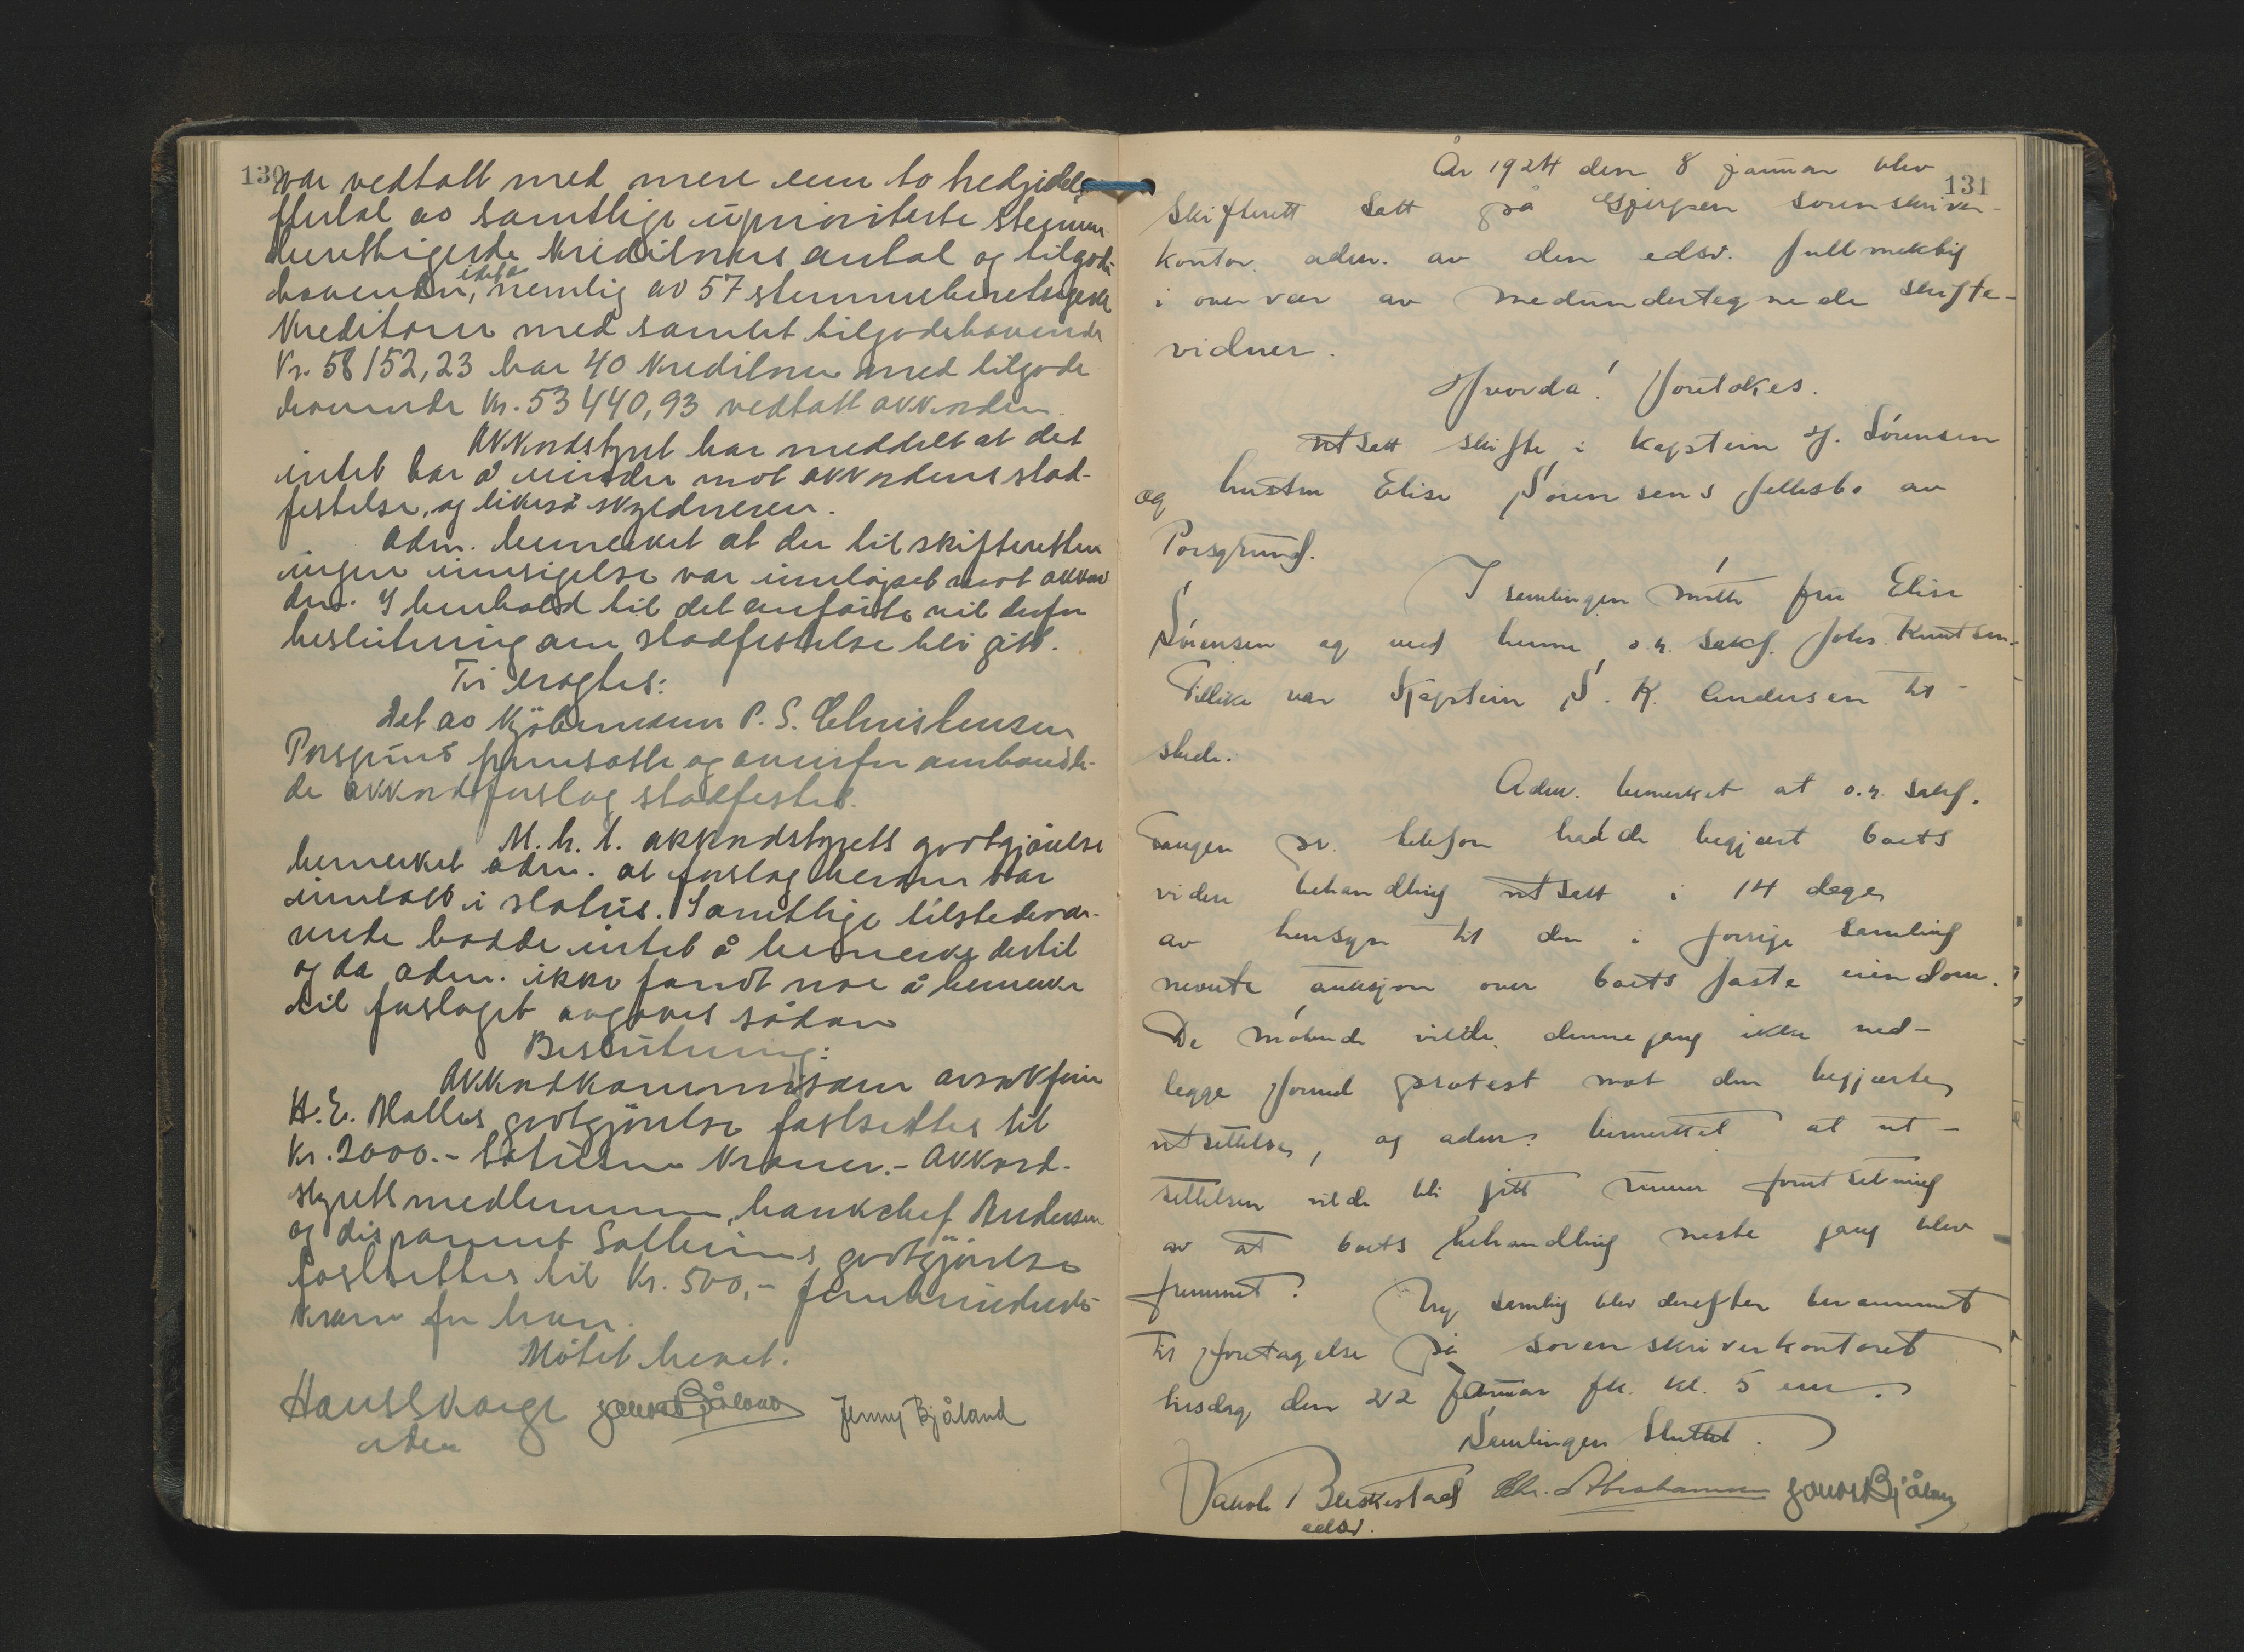 130
var vedtatt med mere enn to tredjedeles
flertal av samtlige uprioriterte stemme
berettigede kreditorers antal og tilgode-
havender, idet nemlig av 57 stemmeberettigede
Kreditorer med samlet tilgodehavende
Kr. 58152,23 har 40 Kreditorer med tilgode
havende Kr. 53440,93 vedtatt akkorden.
Akkordstyret har meddelt at det
intet har å erindre mot akkordens stad-
festelse, og likeså skyldneren.
Adm. bemerket at der til skifteretten
ingen innsigelse var innløpet mot akkor
den. I henhold til det anførte vil derfor
beslutning om stadfestelse bli gitt.
Ti eragtes:
Det av Kjøbmann P. S. Christensen
Porsgrund fremsatte og ovenfor ombandle-
de akkordforslag stadfestes.
M. h. t. akkordstyrets godtgjørelse
bemerket adm. at forslag herom var
inntatt i status. Samtlige tilstedevær-
ende hadde intet å bemerke dertil
og da adm. ikke fandt noe å bemerke
til forslaget avgaves sådan
Beslutning:
Akkordkommisær o.r.sakfører
H. E. Møllers godtgjørelse fastsettes til
Kr. 2000.- totusen Kroner.- Akkord-
styrets medlemmer, bankchef Andersen
og disponent godtgjørelse
fastsettes til Kr. 500,- femhundrede
kroner for hver.
Møtet hevet.
Jenny Bjåland
131
År 1924 den 8 januar blev
Skifterett satt på Gjerpen sorenskriver-
kontor adm. av den edsv. fullmektig
i overvær av medundertegnede skifte-
vidner.
Hvorda! Foretokes.
utsatt skifte i kaptein H. Sørensen
og hustru Elise Sørensens fellesbo av
Porsgrund.
I samlingen møtte fru Elise
Sørensen og med henne o.r. sakf. Johs. Knutsen.
Tillike var Kaptein S. K. Andersen til-
stede.
Adm. bemerket at o.r. sakf.
Tangen pr. telefon hadde begjært boets
videre behandling utsatt i 14 dage
av hensyn til den i forrige samling
nevnte auksjon over boets faste eiendom.
De møtende vilde dennegang ikke ned-
legge formel protest mot den begjærte
utsettelse, og adm. bemerket at ut-
settelsen vilde bli gitt under forutsetning
av at boets behandling neste gang blev
fremmet. Ny samling blev derefter berammet
til foretagelse på sorenskriverkontoret
tirsdag den 22 januar fk. kl. 5 em.
Samlingen sluttet.
Jakob Chr. Abrahamsen Bjåland
edsv.